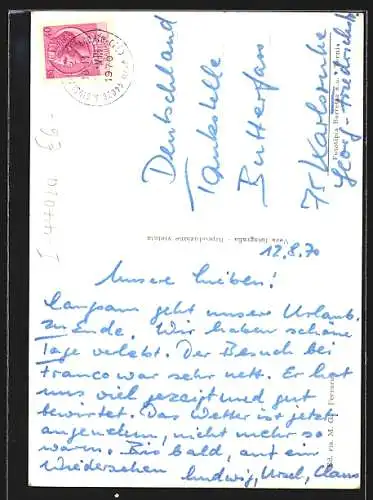 Deutschland
Tankstelle
Butterfass
75 Karlsruhe
Georg-Friedrichstr.
Vera fotografia - Riproduzione vietata
12.8.70
Unsere Lieben!
Langsam geht unsere Urlaub
zu Ende. Wir haben schöne
Tage verlebt. Der Besuch bei
Franco war sehr nett. Er hat
uns viel gezeigt und gut
bewirtet. Das Wetter ist jetzt
angenehm, nicht mehr so
warm. Bis bald, auf ein
Wiedersehen Ludwig, Ursel, Claus
1970
I-4701a E6-